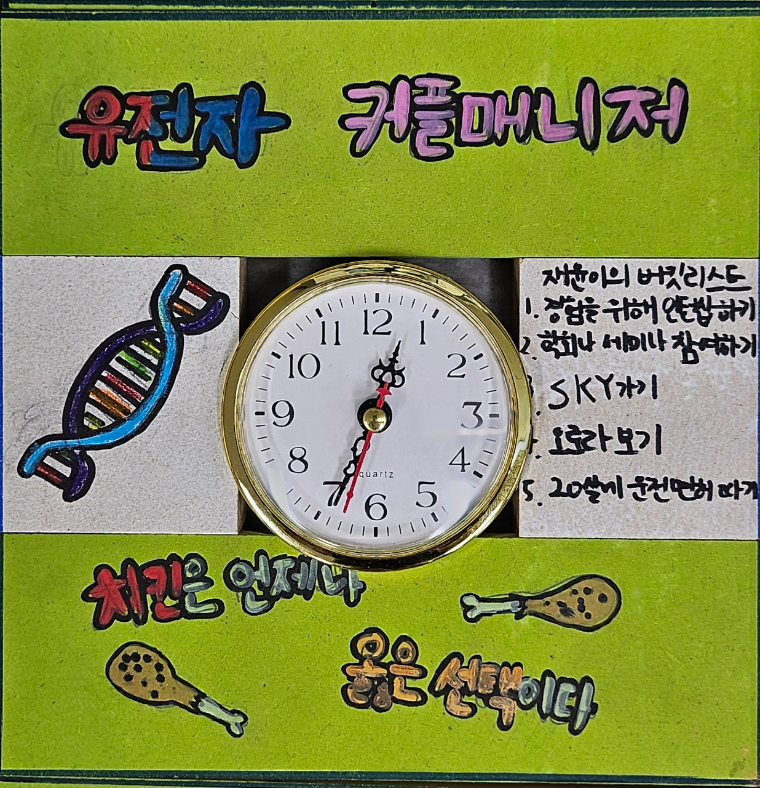 유전자 커플매니저
재윤이의 버킷리스트
1. 경험을 위해 안톤밥하기
2. 학회나 세미나 참여하기
3. SKY가기
4. 오로라 보기
5. 20살에 운전면허 따기
12
1
2
3
4
5
6
7
8
9
10
11
quartz
치킨은 언제나
옳은 선택이다